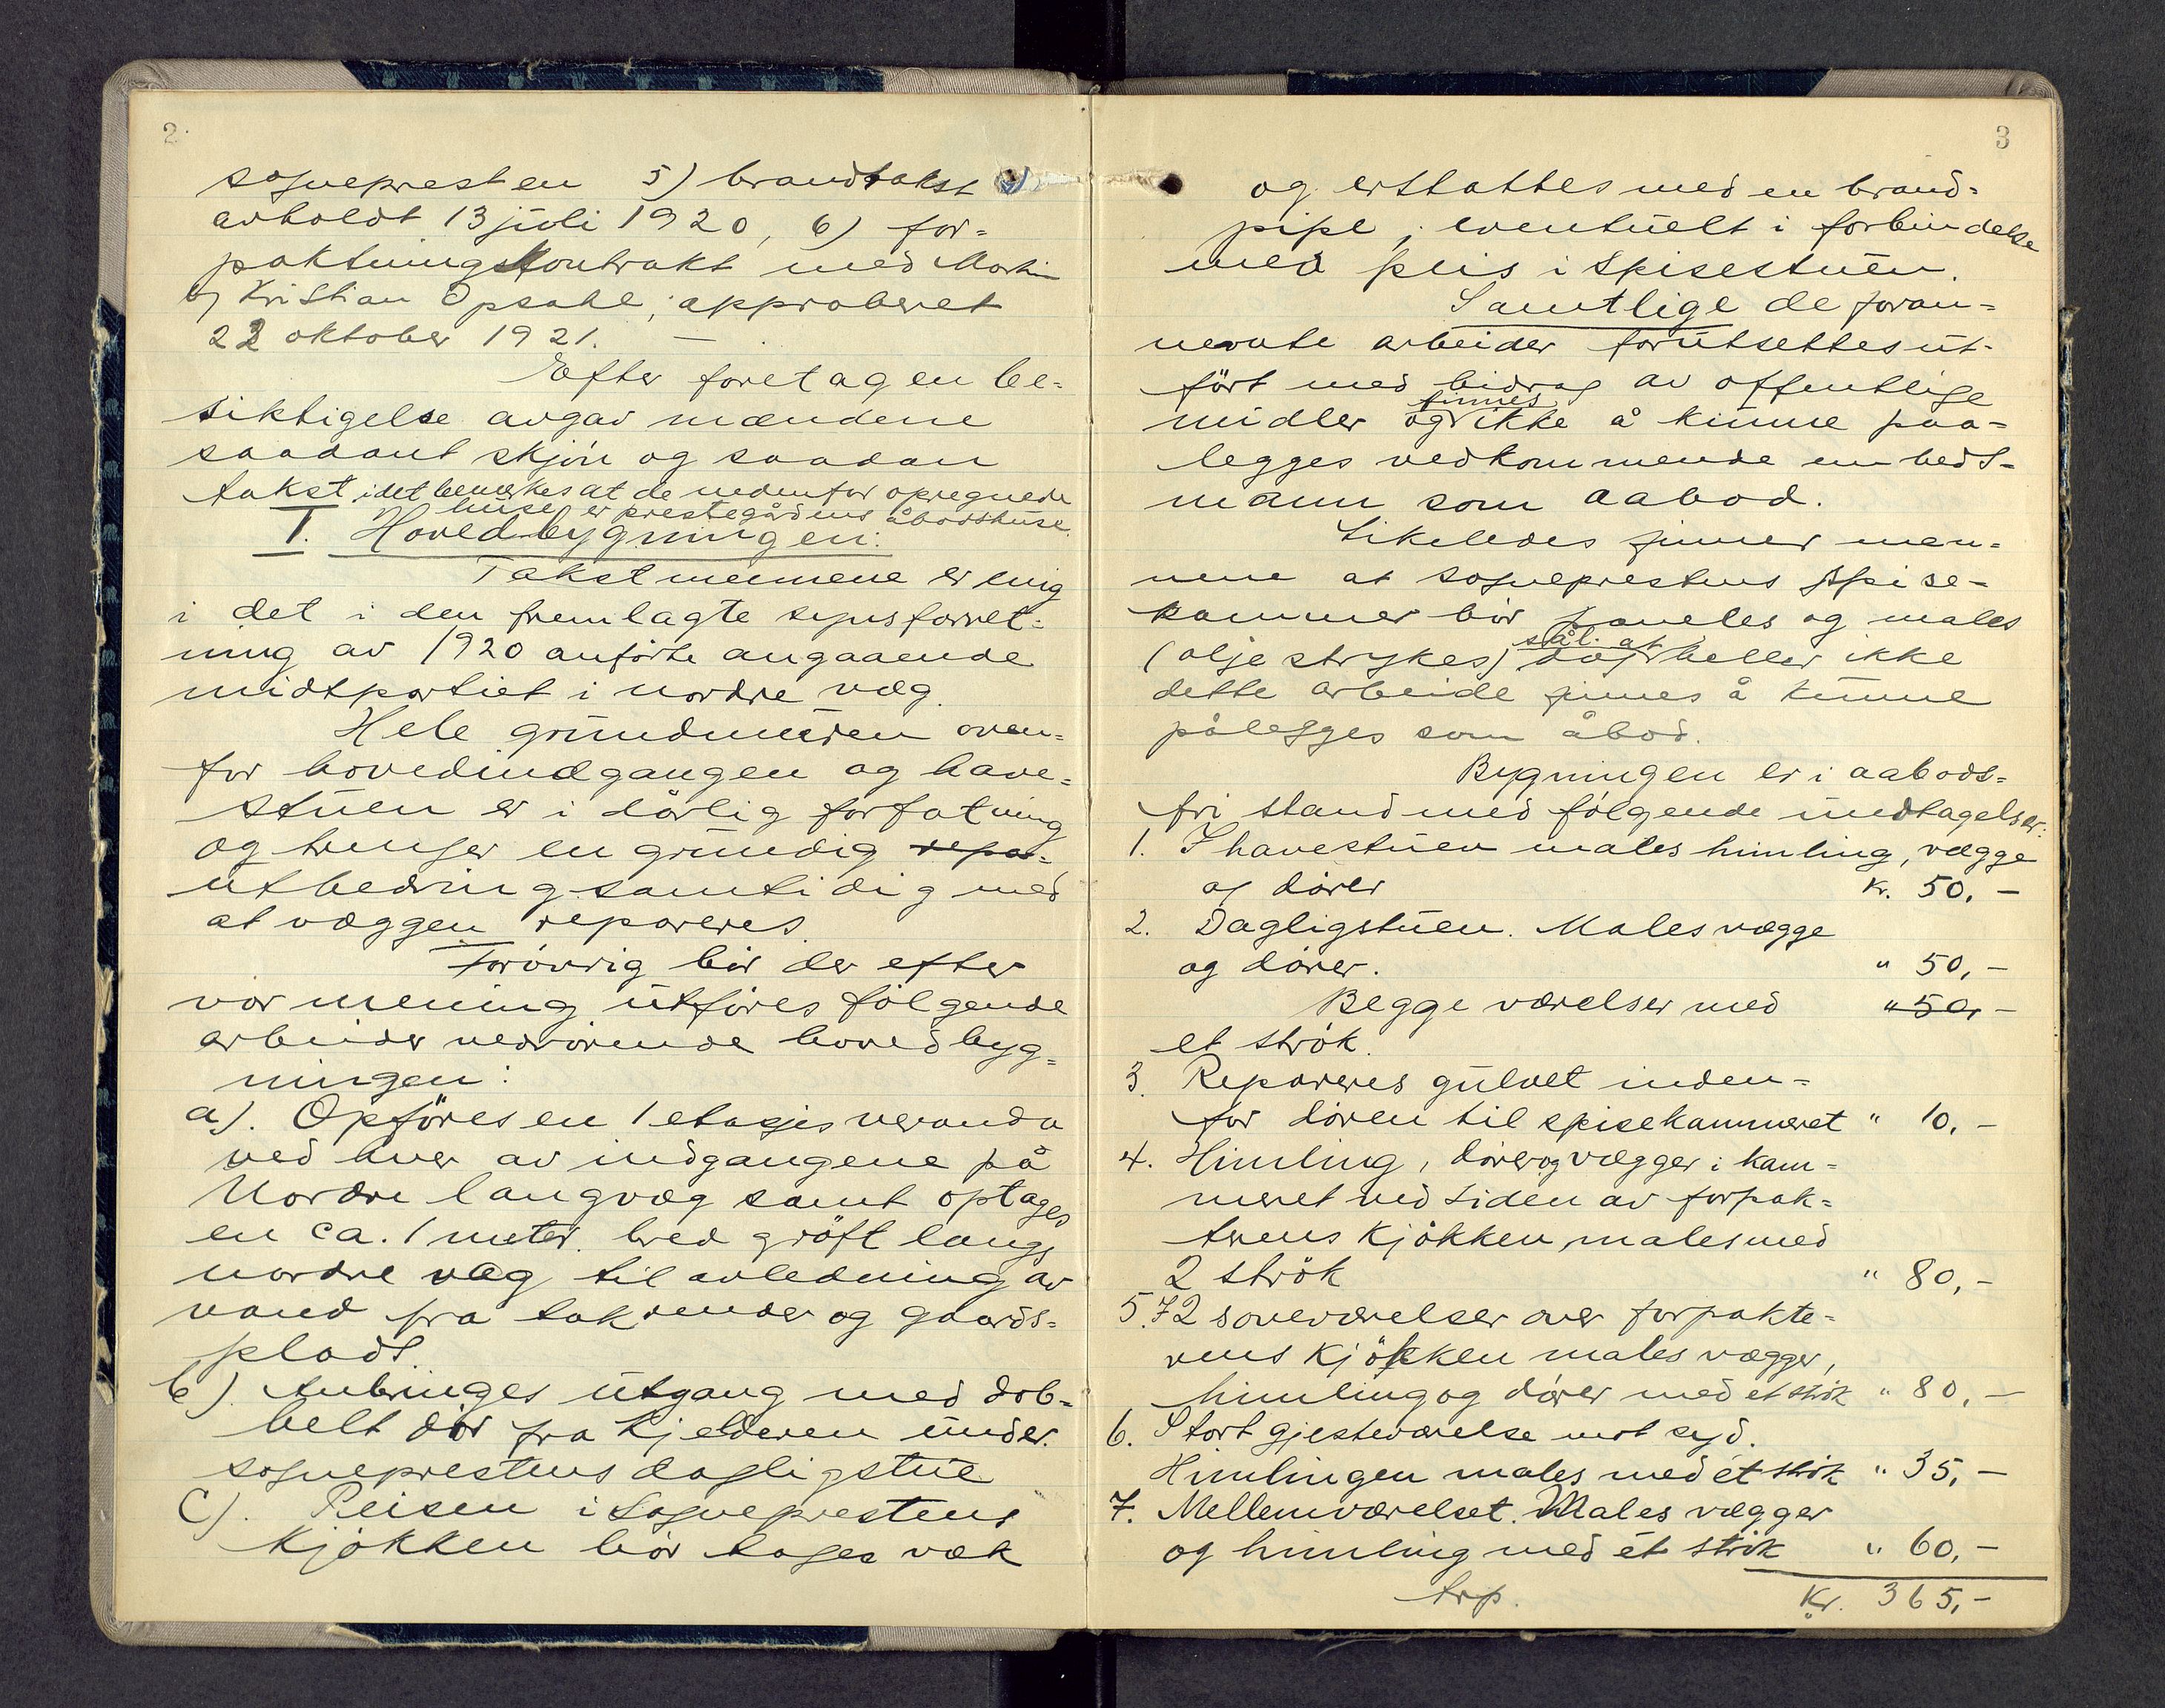 2.
sognepresten 5) brandtakst
avholdt 13 juli 1920, 6) for=
paktningskontrakt med Martin
og Kristian Opsahl, approberet
22 oktober 1921. —
Efter foretagen be=
siktigelse avgav mændene
saadant skjön og saadan
takst, idet bemerkes at de nedenfor opregnede
huse er prestegårdens åbodshuse.
I. Hovedbygningen:
Takstmennene er enig
i det i den fremlagte synsforret=
ning av 1920 anförte angaaende
midtpartiet i nordre væg.
Hele grundmuren oven=
for hovedindgangen og have=
stuen er i dårlig forfatning
og trenger en grundig repa=
utbedring samtidig med
at væggen repareres.
Forövrig bör der efter
vor mening utföres fölgende
arbeider vedrörende hovedbyg=
ningen:
a). Opföres en 1 etasjes veranda
ved hver av indgangene på
Nordre langvæg samt optages
en ca. 1 meter bred gröft langs
nordre væg til avledning av
vand fra takrender og gaards=
plads.
b). Anbringes utgang med dob=
belt dör fra kjelderen under
sogneprestens dagligstue
C). Peisen i Sogneprestens
kjökken bör tages væk
3
og erstattes med en brand=
pipe, eventuelt i forbindelse
med peis i Spisestuen.
Samtlige de foran=
nevnte arbeider forutsettes ut-
fört med bidrag av offentlige
finnes
midler og ikke å kunne paa-
legges vedkommende embeds-
mann som aabod.
Likeledes finner men=
nene at sogneprestens spise-
kammer bör paneles og males
sål. at
(olje strykes) dog heller ikke
dette arbeide finnes å kunne
pålegges som åbod.
Bygningen er i aabods=
fri stand med fölgende undtagelser:
1. I havestuen males himling, vægge
og dörer Kr. 50,-
2. Dagligstuen. Males vægge
og dörer. " 50,-
Begge værelser med " 50,-
et strök.
3. Repareres gulvet inden=
for dören til spisekammeret " 10,-
4. Himling, dörer og vægger i kam=
meret ved siden av forpak=
terens kjökken, males med
2 strök " 80,-
5. I 2 soveværelser over forpakte=
rens kjökken males vægger,
himling og dörer med et strök " 80,-
6. Stort gjesteværelse mot syd.
Himlingen males med ét strök " 35,-
7. Mellemværelset. Males vægger
og himling med ét strök " 60,-
trp. Kr. 365,-